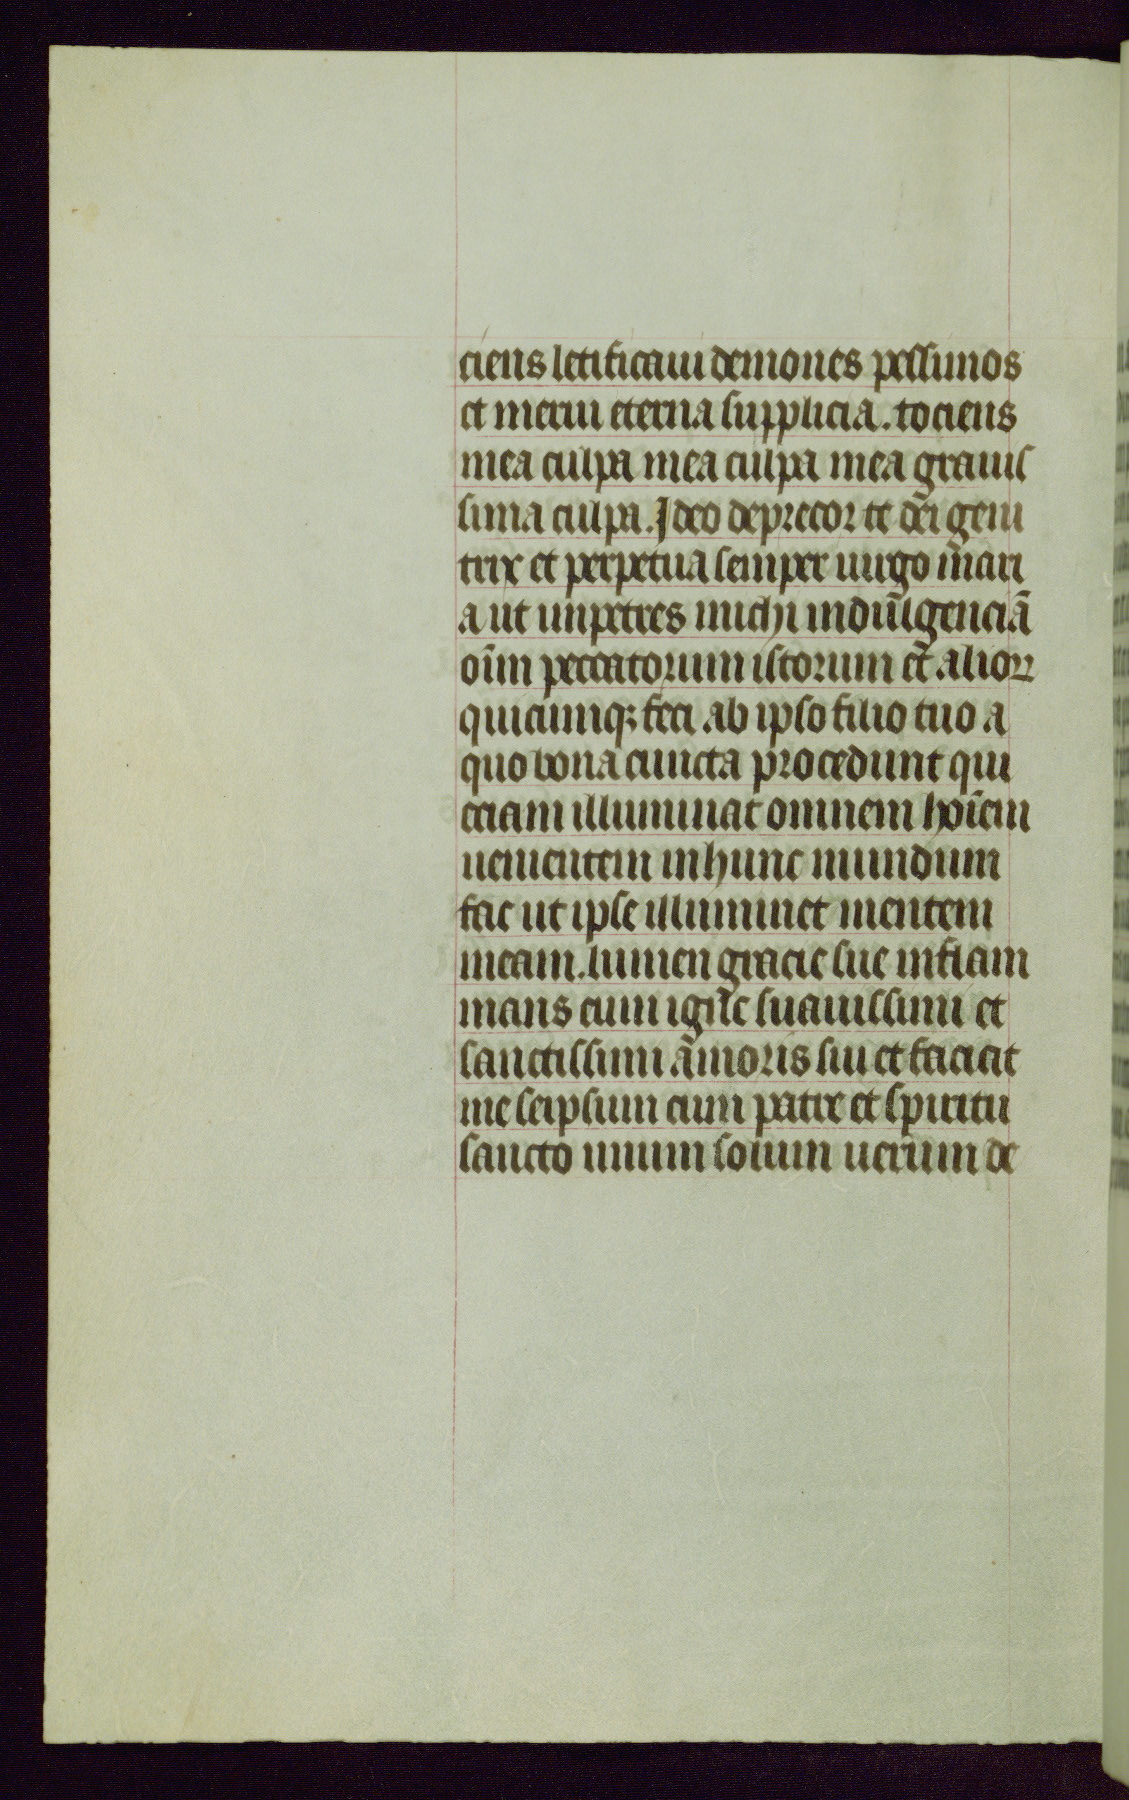 ciens letificaui demones pessimos
et merui eterna supplicia. tociens
mea culpa mea culpa mea grauis
sima culpa. Ideo deprecor te dei geni
trix et perpetua semper uirgo mari
a ut impetres michi indulgenciā
oīm peccatorum istorum et alioꝝ
quicumqꝫ feci ab ipso filio tuo a
quo bona cuncta procedunt qui
eciam illuminat omnem hoīem
uenientem in hunc mundum
fac ut ipse illuminet mentem
meam. lumen gracie sue inflam
mans eum igne suauissimi et
sanctissimi amoris sui et faciat
me seipsum cum patre et spiritu
sancto unum solum uerum de